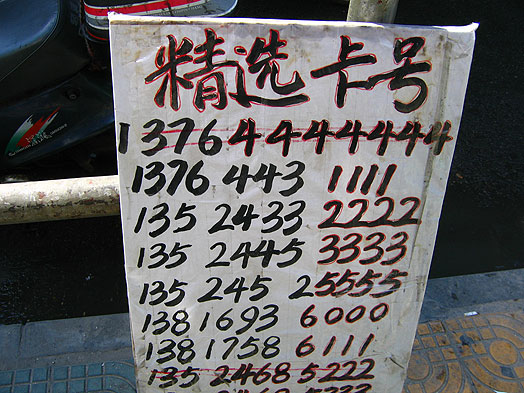 精选卡号
13764444444
1376 443 1111
135 2433 2222
135 2445 3333
135 245 25555
138 1693 6000
138 1758 6111
135 2468 5222